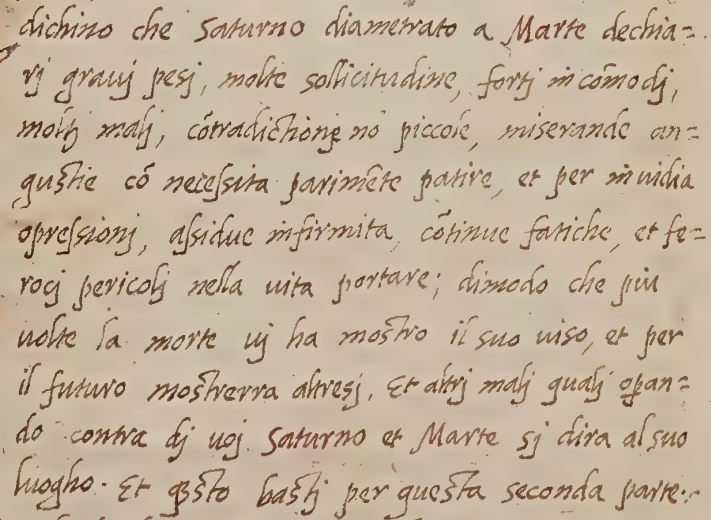 dichino che Saturno diametrato a Marte dechia=
rj grauj pesj, molte sollicitudine, fortj incõmodj,
moltj malj, cõtradictione nõ piccole, miserande an=
gustie cõ necessita parimẽte patire, et per inuidia
opressionj, assidue infirmita, cõtinue fatiche, et fe=
rocj pericolj nella uita portare; dimodo che piu
uolte la morte uj ha mostro il suo uiso, et per
il futuro mostrerra altresj. Et altrj malj qualj opan=
do contra dj uoj Saturno et Marte sj dira al suo
luogho. Et qsto bastj per questa seconda parte.